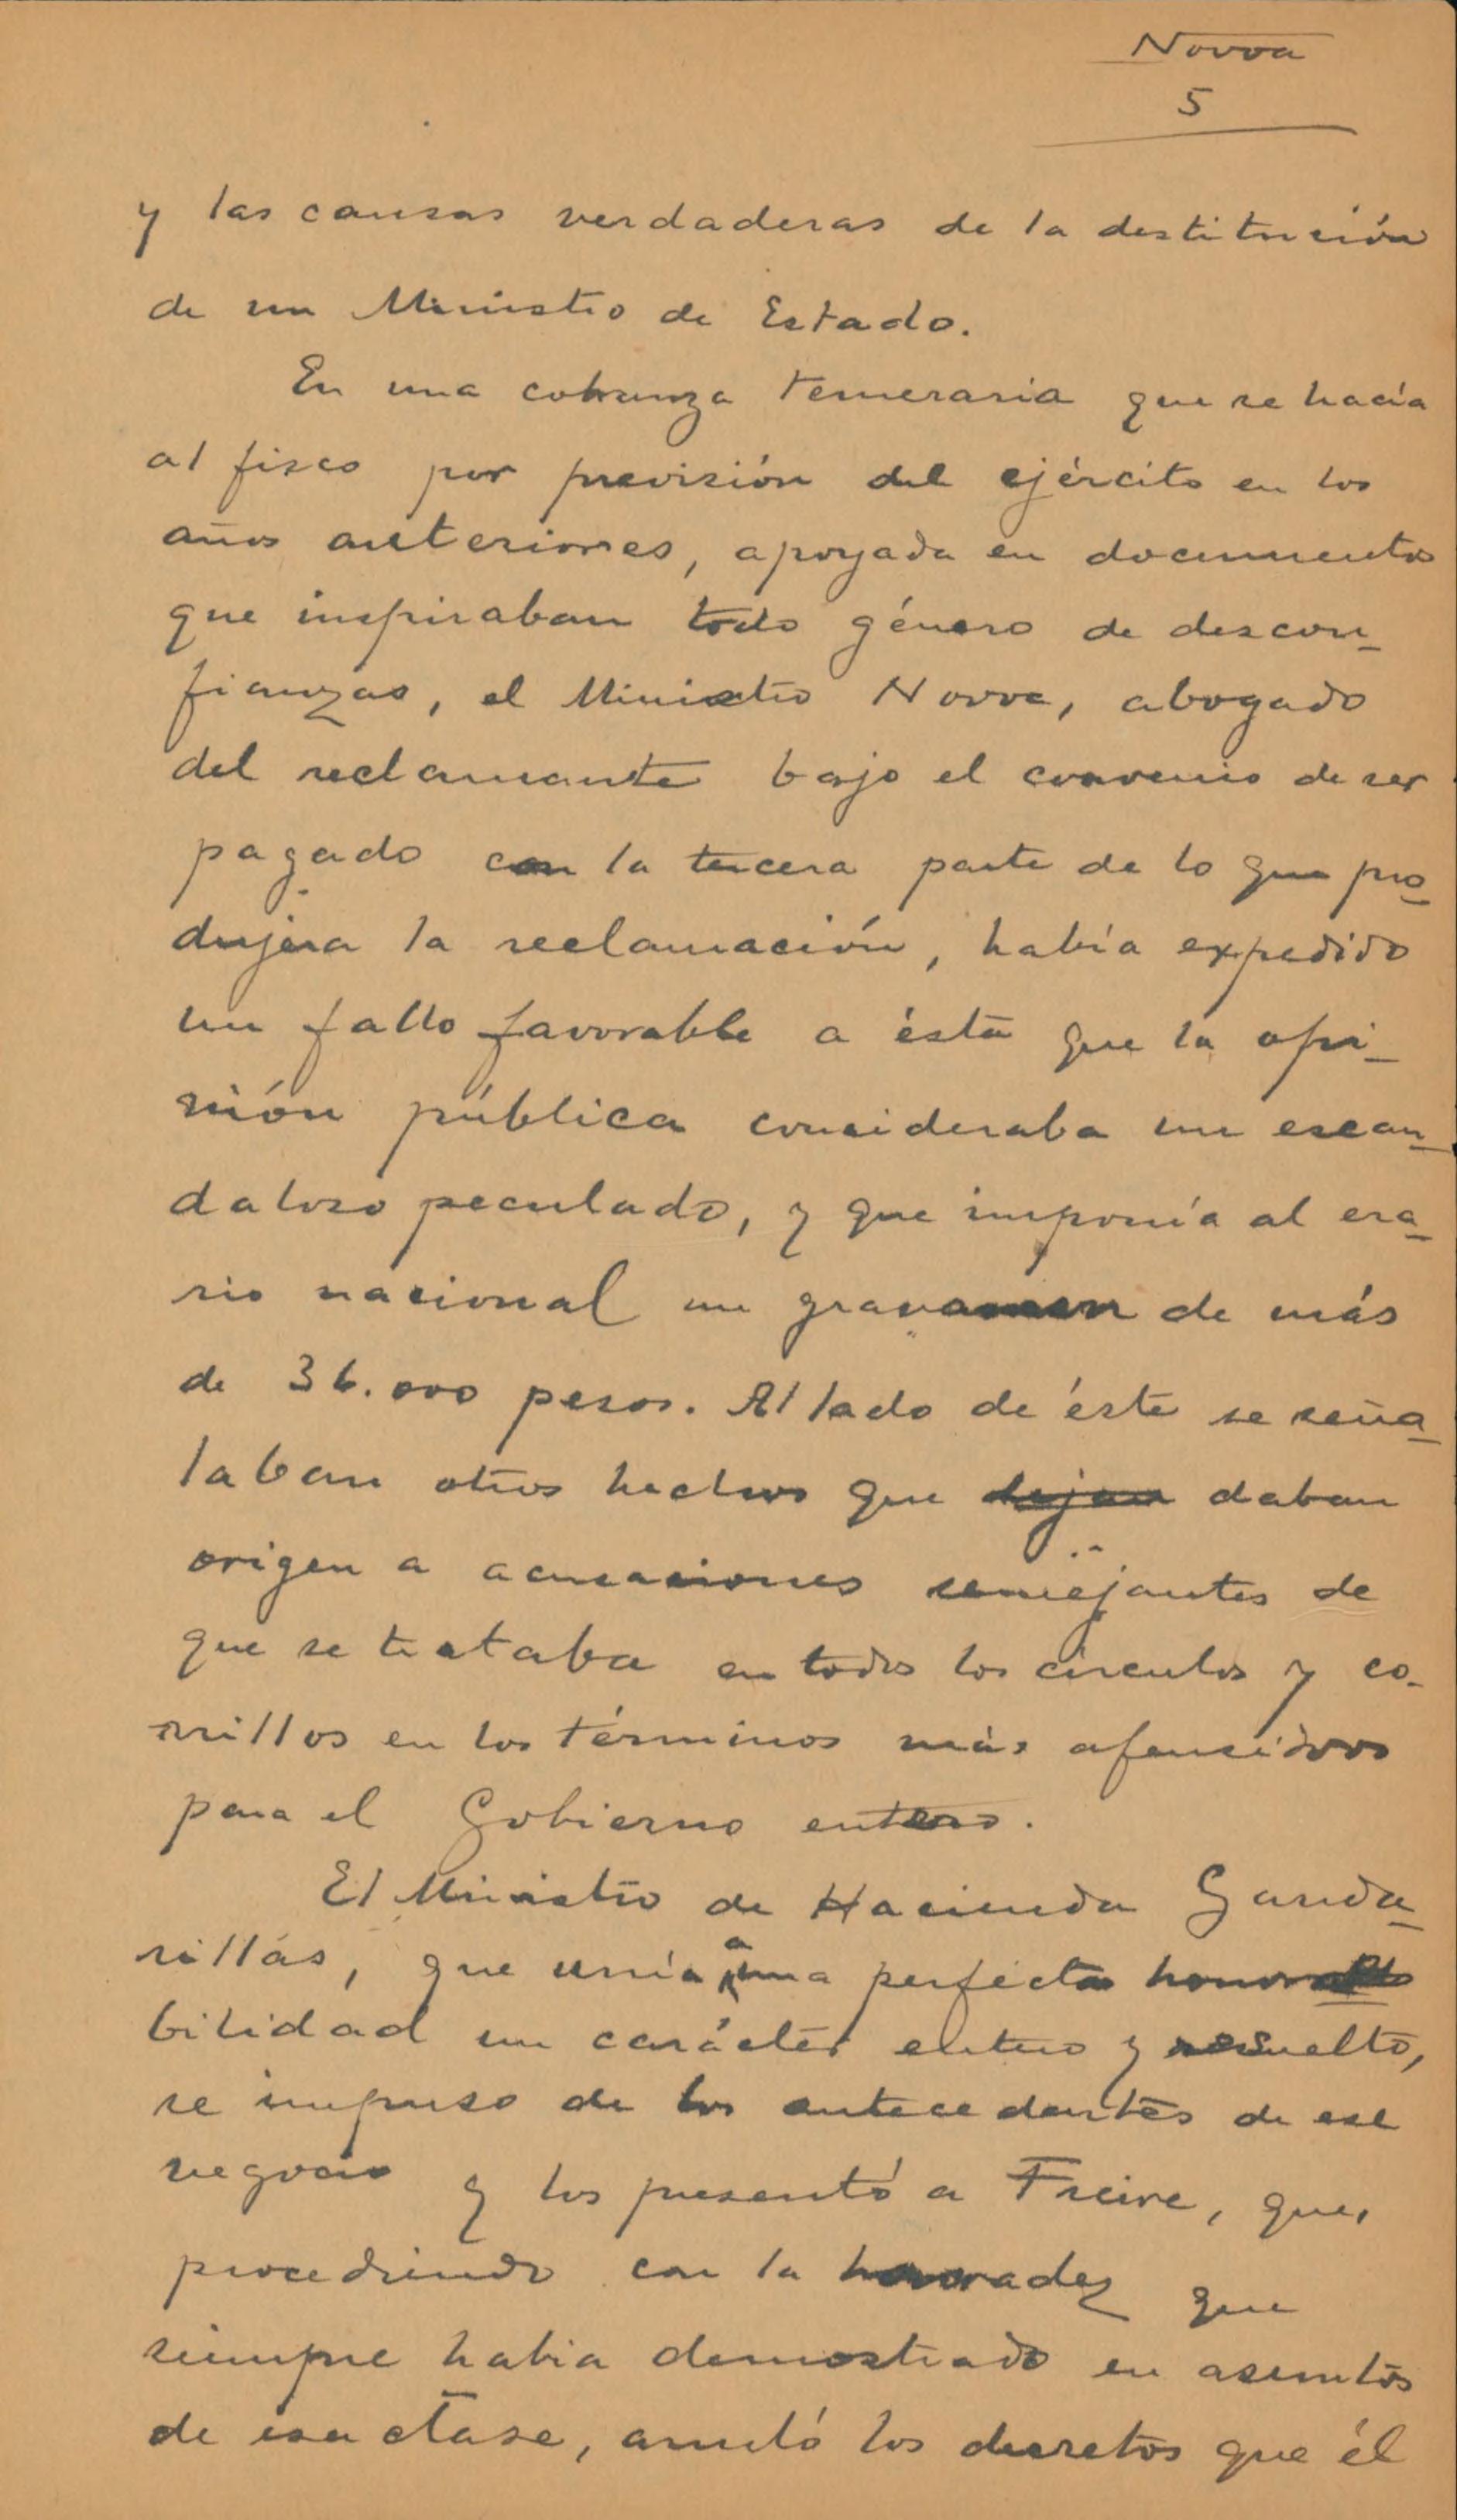 Novoa
5
y las causas verdaderas de la destitución
de un Ministro de Estado.
En una cobranza temeraria que se hacía
al fisco por previsión del ejército en los
años anteriores, apoyada en documentos
que inspiraban todo género de descon-
fianzas, el Ministro Novoa, abogado
del reclamante bajo el convenio de ser
pagado con la tercera parte de lo que pro-
dujera la reclamación, había expedido
un fallo favorable a ésta que la opi-
nión pública consideraba un escan-
daloso peculado, y que imponía al era-
rio nacional un gravamen de más
de 36.000 pesos. Al lado de éste se seña-
laban otros hechos que dejan daban
origen a acusaciones semejantes de
que se trataba en todos los círculos y co-
rrillos en los términos más ofensivos
para el Gobierno entero.
El Ministro de Hacienda Ganda-
rillas, que unía a una perfecta honora-
bilidad un carácter entero y resuelto,
se impuso de los antecedentes de ese
negocio y los presentó a Freire, que,
procediendo con la honradez que
siempre había demostrado en asuntos
de esa clase, anuló los decretos que él